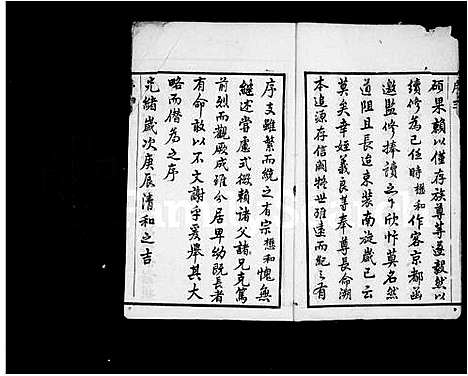 碩果賴以僅存族尊等遂毅然以
續修為己任時想和作客京都函
邀監修捧讀之下欣忭莫名然
道阻且長迨束裝南旋歲已云
莫矣幸姪義良等奉尊長命溯
本追源存信闕特世雖遠而紀之有
序支雖繁而統之有宗想和愧無
繼述嘗慮式微賴諸父諸兄克篤
前烈而觀厥成雖分居卑幼既長者
有命敢以不文謝乎爰舉其大
略而僭為之序
光緒歲次庚辰清和之吉